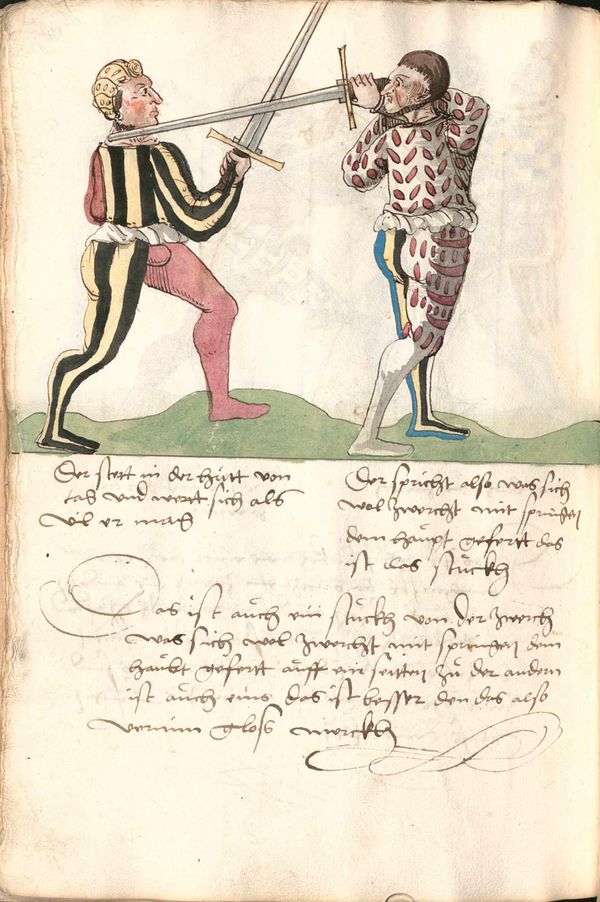 Der stett in der hůtt vom
tag vnd wertt sich als
vil er mag
Der spricht also was sich
wol zwercht mit springen
dem haupt gefertt das
ist das stuckh
Das ist auch ein stuckh von der zwerch
was sich wol zwercht mit springen dem
haubt gefertt auff ein seitten zu der andern
ist auch eins das ist besser den das also
vernim gloss merckh